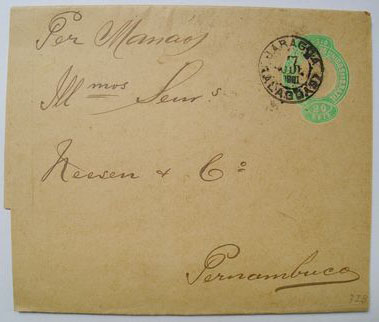 Per Manaos
Ill mos Senrs
Neesen & Co
Pernambuco
JARAGUA
17
1891
(ALAGOAS)
20
REIS